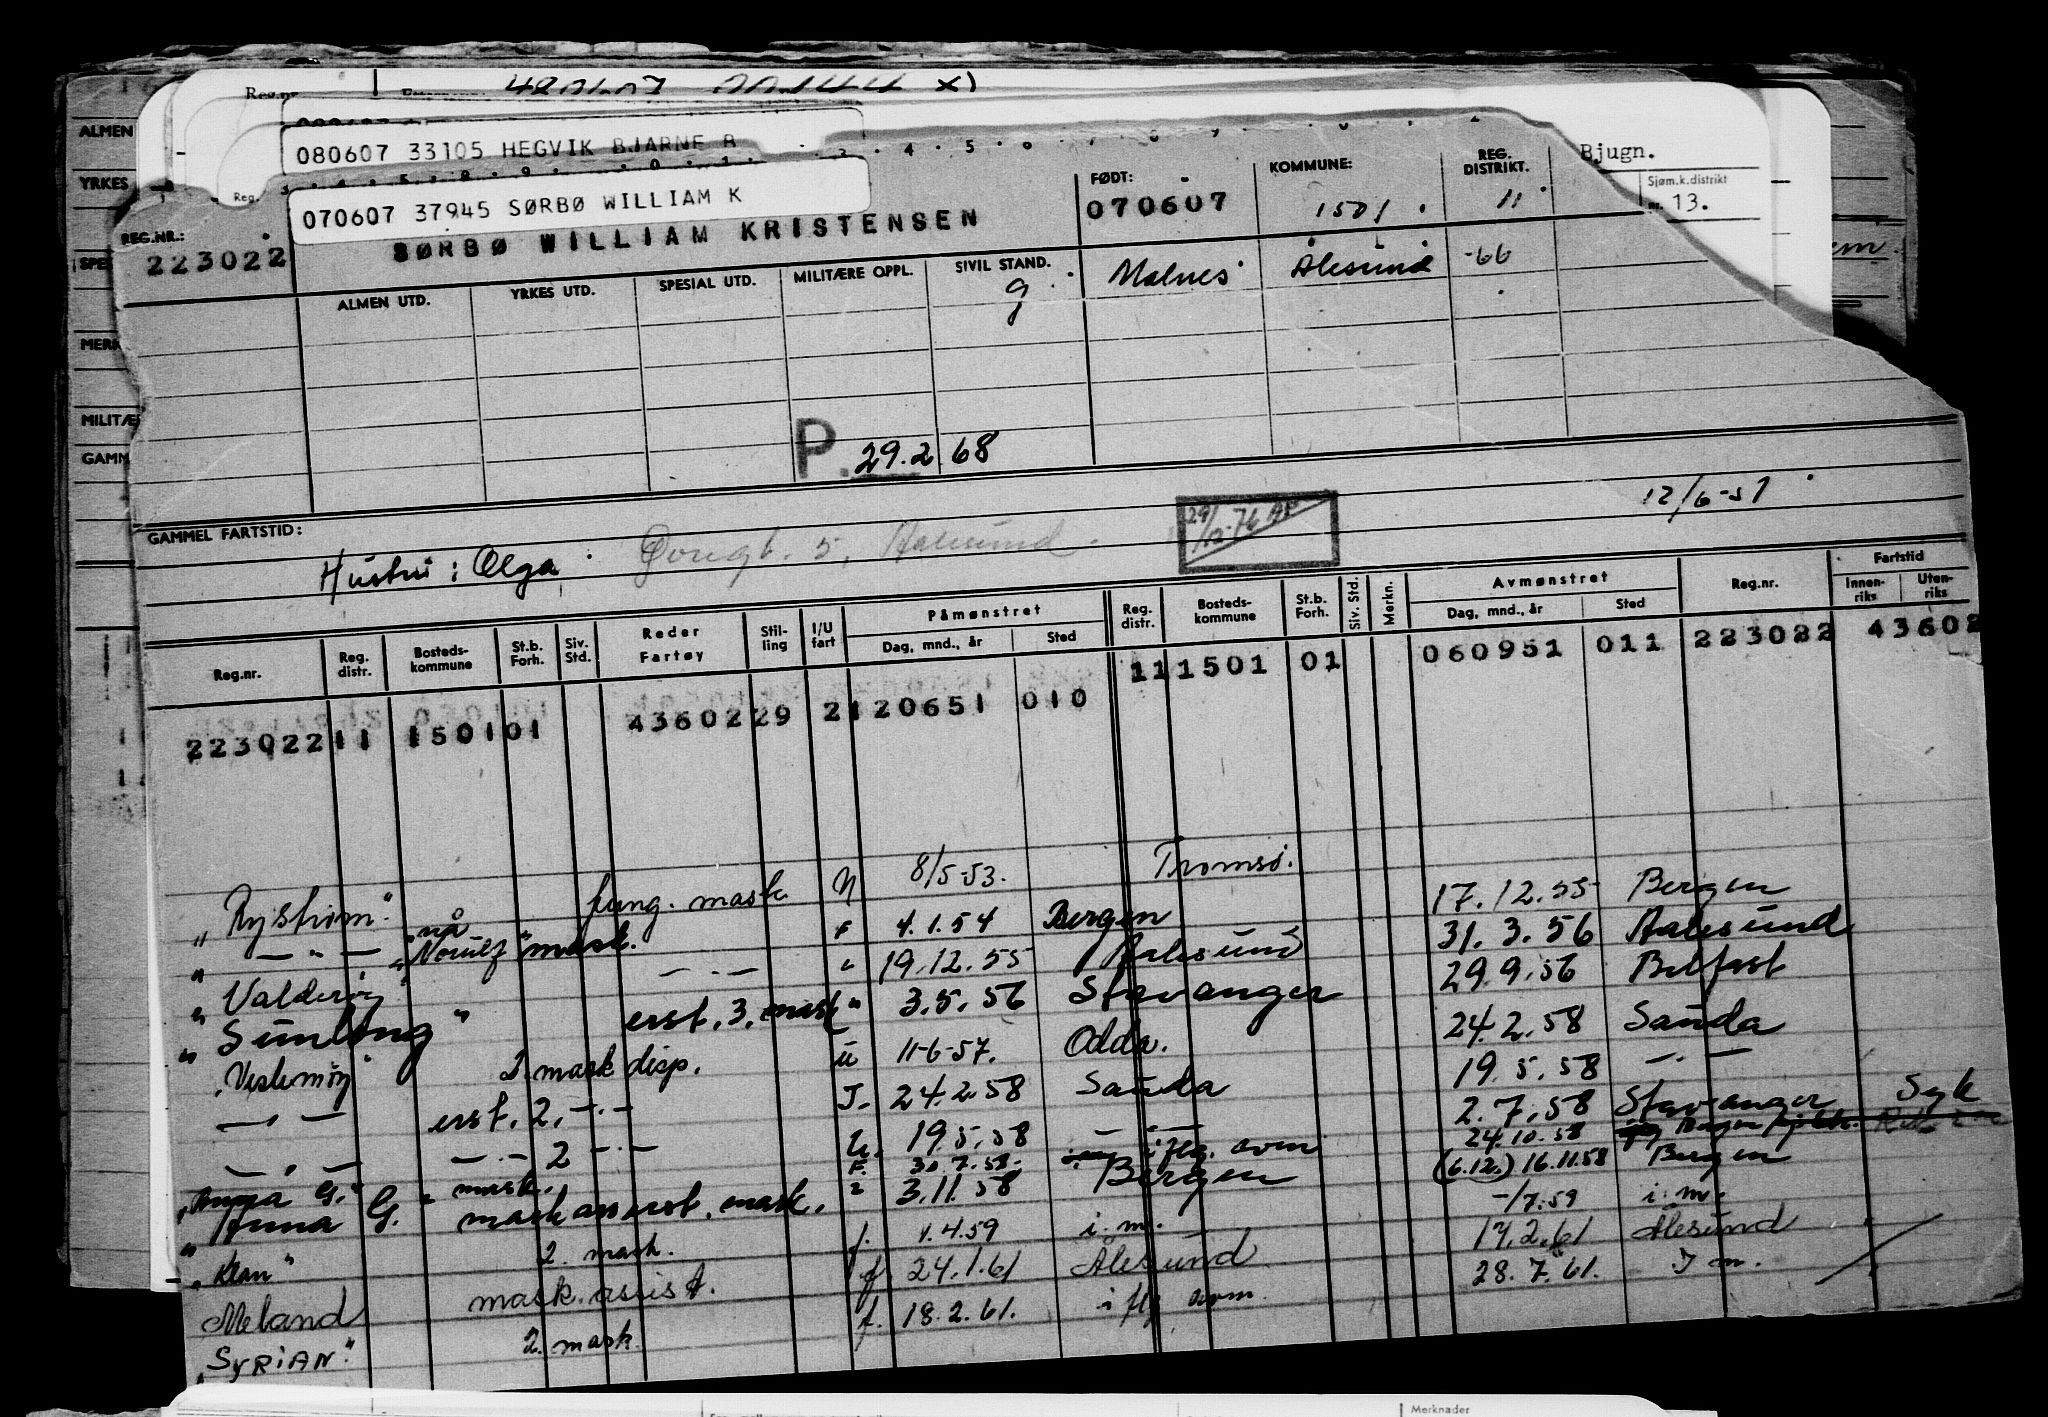 Reg.nr. 480607 00144 x)
ALMEN
YRKES
MERK
MILITÆ
GAMM
080607 33105 HEGVIK BJARNE R
070607 37945 SØRBØ WILLIAM K
Bjugn.
Sjøm.k.distrikt
nr. 13.
REG.NR.: 223022
SØRBØ WILLIAM KRISTENSEN
FØDT: 070607
KOMMUNE: 1501
REG. DISTRIKT. 11
ALMEN UTD. YRKES UTD. SPESIAL UTD. MILITÆRE OPPL. SIVIL STAND. g Ålesund -66
P. 29.2.68
GAMMEL FARTSTID: 12/6-51
Hustru: Olga
Reg.nr. Reg. distr. Bosteds-kommune St.b. Forh. Siv. Std. Reder Fartøy Stil-ling I/U fart Påmønstret Dag, mnd., år Sted Reg. distr. Bosteds-kommune St.b. Forh. Siv. Std. Merkn. Avmønstret Dag, mnd., år Sted Reg.nr. Fartstid Innen-riks Uten-riks
223022 11 1501 01 43602 29 2 120651 010 11 1501 01 060951 011 223022 43602
"Rystrøm" fung. mask N 8/5-53. Tromsø.
" — " — nå "Norulf" mask. F 4.1.54 Bergen 17.12.55 Bergen
"Valderøy — " — 19.12.55 Aalesund 31.3.56 Aalesund
"Sunlong" erst. 3. mask " 3.5.56 Stavanger 29.9.56 Belfast
"Vestemøy" 2. mask disp. u 11-6-57. Odda. 24.2.58 Sauda
— " — erst. 2. — " — I. 24.2.58 Sauda 19.5.58 — " —
— " — 2 — " — U. 19.5.58 — " — 2.7.58 Stavanger Syk
"Anna G." mask. F. 30.7.58. iflg. avm 24.10.58
"Anna G." mask ass erst. mask. 3.11.58 Bergen (6.12.) 16.11.58 Bergen
"Klan" 2. mask. f. 1.4.59 i. m. -/7.59 i. m.
Meland mask. assist. f. 24.1.61 Ålesund 17.2.61 Ålesund
"SYRIAN" 2. mask. f. 18.2.61. iflg avm. 28.7.61. I m.
Merknader